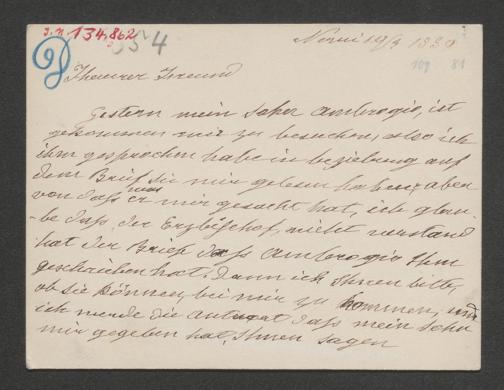 J.N. 134.862
4
Nervi 19/3 1880
109 81
Theurer Freund
Gestern mein Sohn Ambrogio, ist
gekommen mir zu besuchen, also ich
ihm gesprochen habe in beziehung auf
dem Brief die mir gelesen haben, aber
von dass er mir gesacht hat, ich glau-
-be dass der Erzbischof, nicht verstand
hat der Brief dass Ambrogio Ihm
geschrieben hat. Dann ich Ihnen bitte,
ob sie können, bei mir zu kommen, und
ich werde die antwort dass mein Sohn
mir gegeben hat, Ihnen sagen